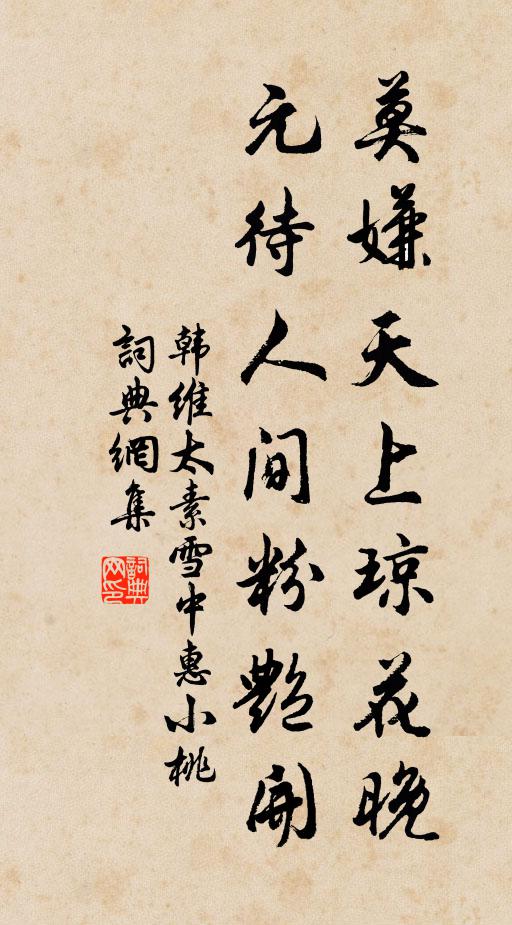 莫嫌天上琼花晚
元待人间粉艷开
韩维太素雪中惠小桃
詞典網集
詞典网印